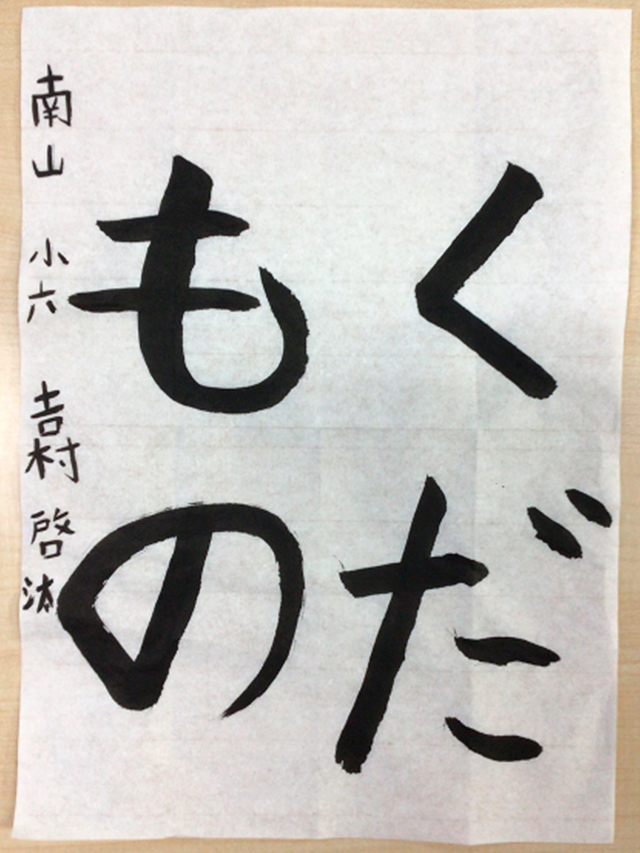 くだ
もの
南山 小六 吉村 啓汰